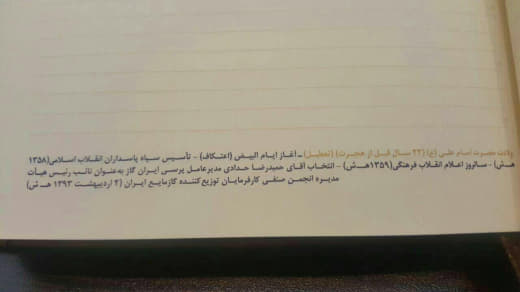 ولادت حضرت امام علی (ع) (۲۳ سال قبل از هجرت) (تعطیل) - آغاز ایام البیض (اعتکاف) - تأسیس سپاه پاسداران انقلاب اسلامی (۱۳۵۸
هـ ش) - سالروز اعلام انقلاب فرهنگی (۱۳۵۹ هـ ش) - انتخاب آقای حمیدرضا حدادی مدیرعامل پرسی ایران گاز به‌عنوان نائب رئیس هیأت
مدیره انجمن صنفی کارفرمایان توزیع‌کننده گازمایع ایران (۲ اردیبهشت ۱۳۹۳ هـ ش)